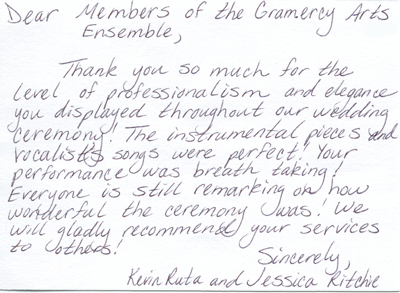 Dear Members of the Gramercy Arts
Ensemble,
Thank you so much for the
level of professionalism and elegance
you displayed throughout our wedding
ceremony! The instrumental pieces and
vocalists songs were perfect! Your
performance was breath taking!
Everyone is still remarking on how
wonderful the ceremony was! We
will gladly recommend your services
to others!
Sincerely,
Kevin Ruta and Jessica Ritchie